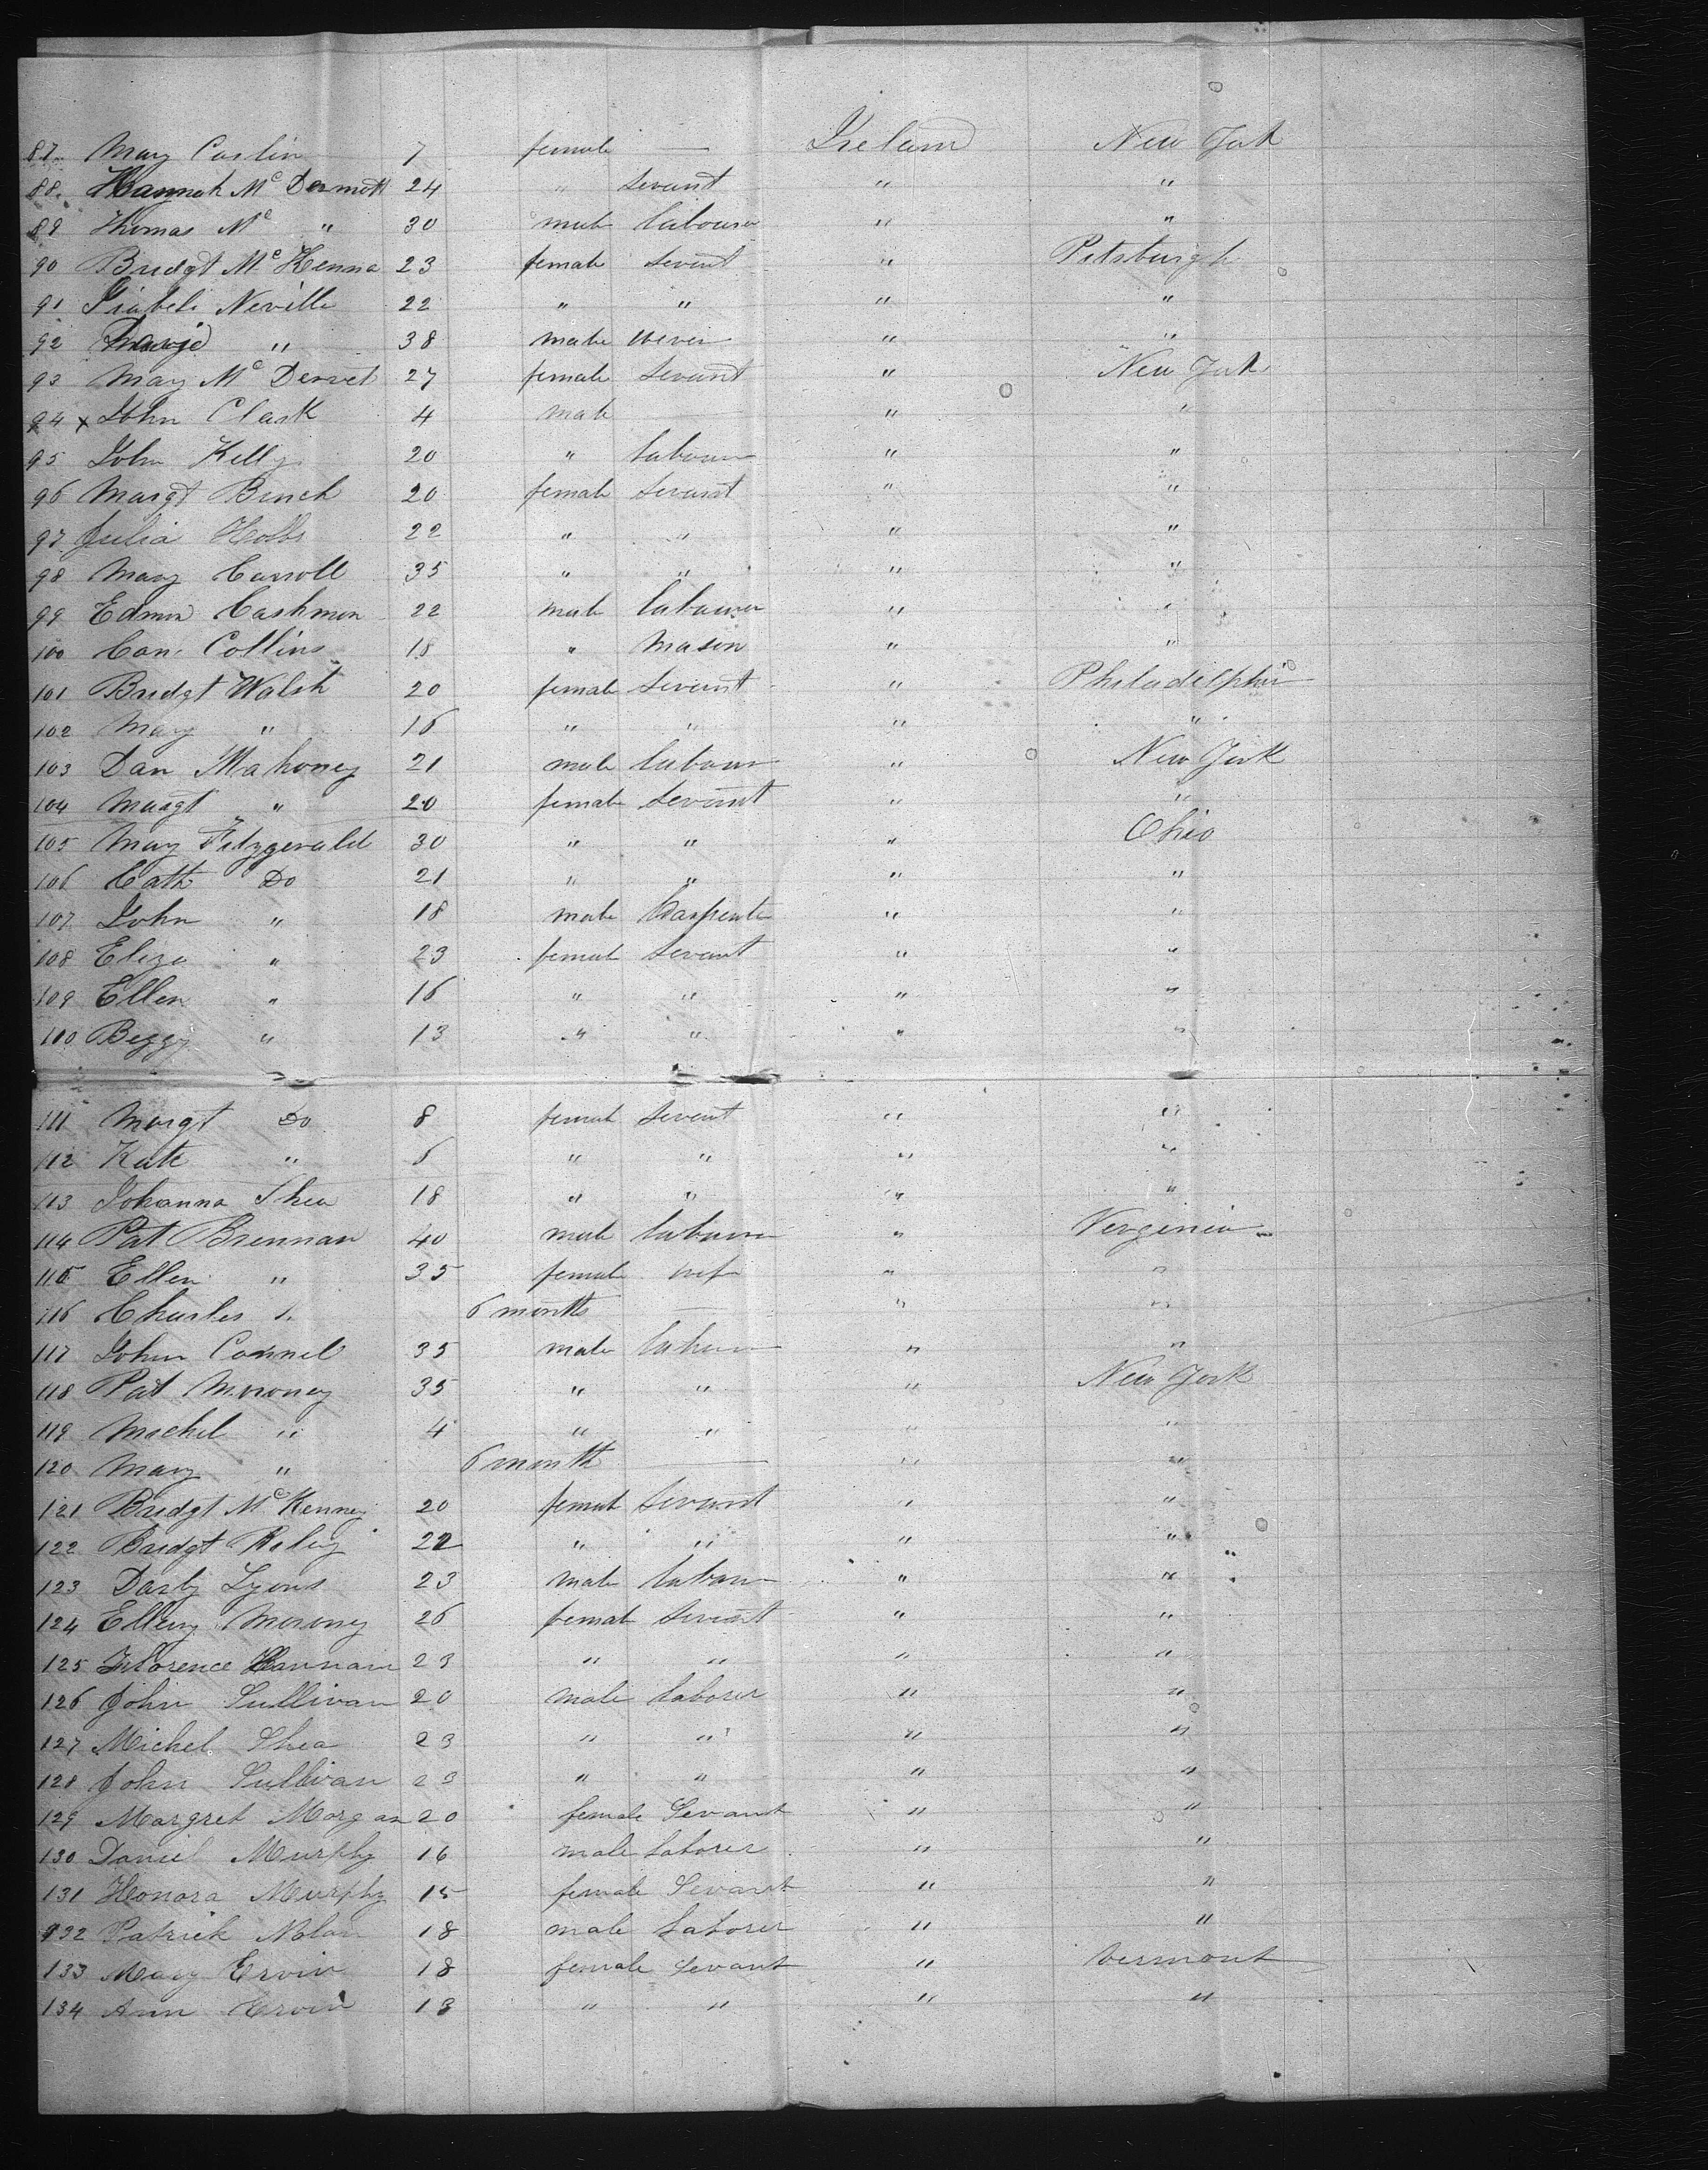 87 Mary Carlin 7 female — Ireland New York
88 Hannah McDermott 24 " Sevant " "
89 Thomas Mc " 30 male labourer " "
90 Bridgt McKenna 23 female Sevant " Pittsburgh
91 Isabela Neville 22 " " " "
92 " 38 male wever " "
93 Mary McDervet 27 female Sevant " New York
94 x John Clark 4 male — " "
95 John Kelly 20 " labourer " "
96 Margt Binch 20 female Sevant " "
97 Julia Hobbs 22 " " " "
98 Mary Carroll 35 " " " "
99 Edmon Cashmon 22 male labourer " "
100 Con. Collins 18 " Mason " "
101 Bridgt Walsh 20 female Sevant " Philadelphia
102 Mary " 16 " " " "
103 Dan Mahoney 21 male labourer " New York
104 Margt " 20 female Sevant " "
105 Mary Fitzgerald 30 " " " Ohio
106 Cath Do 21 " " " "
107 John " 18 male Carpente " "
108 Eliza " 23 female Sevant " "
109 Ellen " 16 " " " "
100 Peggy " 13 " " " "
111 Margt Do 8 female Sevent " "
112 Kate " 6 " " " "
113 Johanna Shea 18 " " " "
114 Pat Brennan 40 male labourer " Verginia
115 Ellen " 35 female wife " "
116 Charles " 6 months — " "
117 John Connel 35 male labourer " "
118 Pat Moroney 35 " " " New York
119 Michel " 4 " " " "
120 Mary " 6 month — " "
121 Bridgt McKenney 20 female Sevant " "
122 Bridgt Riley 22 " " " "
123 Darby Lyons 23 male labour " "
124 Elleny Moroney 26 female Sevant " "
125 Florence Hannan 23 " " " "
126 John Sullivan 20 male laborer " "
127 Michel Shea 23 " " " "
128 John Sullivan 23 " " " "
129 Margret Morgan 20 female Sevant " "
130 Daniel Murphy 16 male laborer " "
131 Honora Murphy 15 female Sevant " "
132 Patrick Nolan 18 male laborer " "
133 Mary Ervin 18 female Sevant " Vermont
134 Ann Ervin 13 " " " "